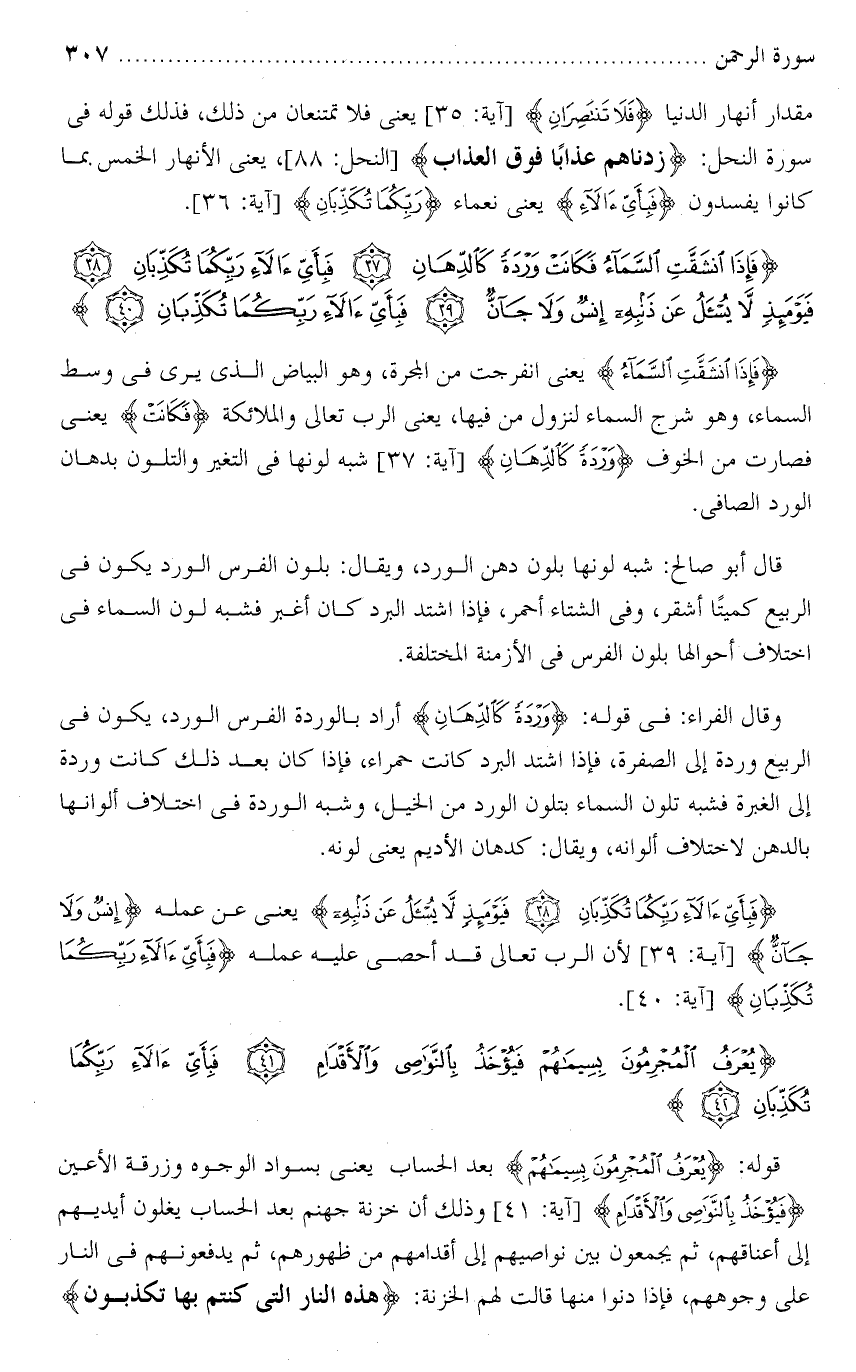 سورة الرحمن ........................................................................ ٣٠٧
مقدار أنهار الدنيا ﴿فَلَا تَنتَصِرَانِ﴾ [آية: ٣٥] يعنى فلا تمتنعان من ذلك، فذلك قوله فى
سورة النحل: ﴿زدناهم عذابًا فوق العذاب﴾ [النحل: ٨٨]، يعنى الأنهار الخمس بمـا
كانوا يفسدون ﴿فَبِأَيِّ ءَالَآءِ﴾ يعنى نعماء ﴿رَبِّكُمَا تُكَذِّبَانِ﴾ [آية: ٣٦].
﴿فَإِذَا ٱنشَقَّتِ ٱلسَّمَآءُ فَكَانَتْ وَرْدَةً كَٱلدِّهَـانِ ٣٧ فَبِأَيِّ ءَالَآءِ رَبِّكُمَا تُكَذِّبَانِ ٣٨
فَيَوْمَئِذٍ لَّا يُسْـَٔلُ عَن ذَنۢبِهِۦٓ إِنسٌ وَلَا جَـآنٌّ ٣٩ فَبِأَيِّ ءَالَآءِ رَبِّـكُمَا تُكَذِّبَانِ ٤٠ ﴾
﴿فَإِذَا ٱنشَقَّتِ ٱلسَّمَآءُ﴾ يعنى انفرجت من المجرة، وهو البياض الـذى يـرى فـى وسـط
السماء، وهو شرج السماء لنزول من فيها، يعنى الرب تعالى والملائكة ﴿فَكَانَتْ﴾ يعنـى
فصارت من الخوف ﴿وَرْدَةً كَٱلدِّهَـانِ﴾ [آية: ٣٧] شبه لونها فى التغير والتلـون بدهـان
الورد الصافى.
قال أبو صالح: شبه لونها بلون دهن الـورد، ويقـال: بلـون الفـرس الـورد يكـون فـى
الربيع كميتًا أشقر، وفى الشتاء أحمر، فإذا اشتد البرد كـان أغـبر فشـبه لـون السـماء فـى
اختلاف أحوالها بلون الفرس فى الأزمنة المختلفة.
وقال الفراء: فـى قولـه: ﴿وَرْدَةً كَٱلدِّهَـانِ﴾ أراد بـالوردة الفـرس الـورد، يكـون فـى
الربيع وردة إلى الصفرة، فإذا اشتد البرد كانت حمراء، فإذا كان بعـد ذلـك كـانت وردة
إلى الغبرة فشبه تلون السماء بتلون الورد من الخيـل، وشـبه الـوردة فـى اختـلاف ألوانـها
بالدهن لاختلاف ألوانه، ويقال: كدهان الأديم يعنى لونه.
﴿فَبِأَيِّ ءَالَآءِ رَبِّكُمَا تُكَذِّبَانِ ٣٨ فَيَوْمَئِذٍ لَّا يُسْـَٔلُ عَن ذَنۢبِهِۦٓ﴾ يعنـى عـن عملـه ﴿إِنسٌ وَلَا
جَـآنٌّ﴾ [آيـة: ٣٩] لأن الـرب تعـالى قـد أحصـى عليـه عملـه ﴿فَبِأَيِّ ءَالَآءِ رَبِّـكُمَا
تُكَذِّبَانِ﴾ [آية: ٤٠].
﴿يُعْرَفُ ٱلْمُجْرِمُونَ بِسِيمَٰهُمْ فَيُؤْخَذُ بِٱلنَّوَٰصِى وَٱلْأَقْدَامِ ٤١ فَبِأَيِّ ءَالَآءِ رَبِّكُمَا
تُكَذِّبَانِ ٤٢ ﴾
قوله: ﴿يُعْرَفُ ٱلْمُجْرِمُونَ بِسِيمَٰهُمْ﴾ بعد الحساب يعنـى بسـواد الوجـوه وزرقـة الأعـين
﴿فَيُؤْخَذُ بِٱلنَّوَٰصِى وَٱلْأَقْدَامِ﴾ [آية: ٤١] وذلك أن خزنة جهنم بعد الحساب يغلون أيديـهم
إلى أعناقهم، ثم يجمعون بين نواصيهم إلى أقدامهم من ظهورهم، ثم يدفعونـهم فـى النـار
على وجوههم، فإذا دنوا منها قالت لهم الخزنة: ﴿هذه النار التى كنتم بها تكذبـون﴾